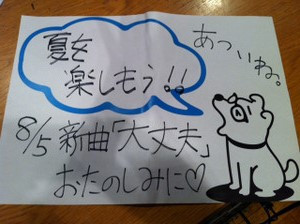 夏を
楽しもう!!
あついね。
8/5 新曲「大丈夫」
おたのしみに♡